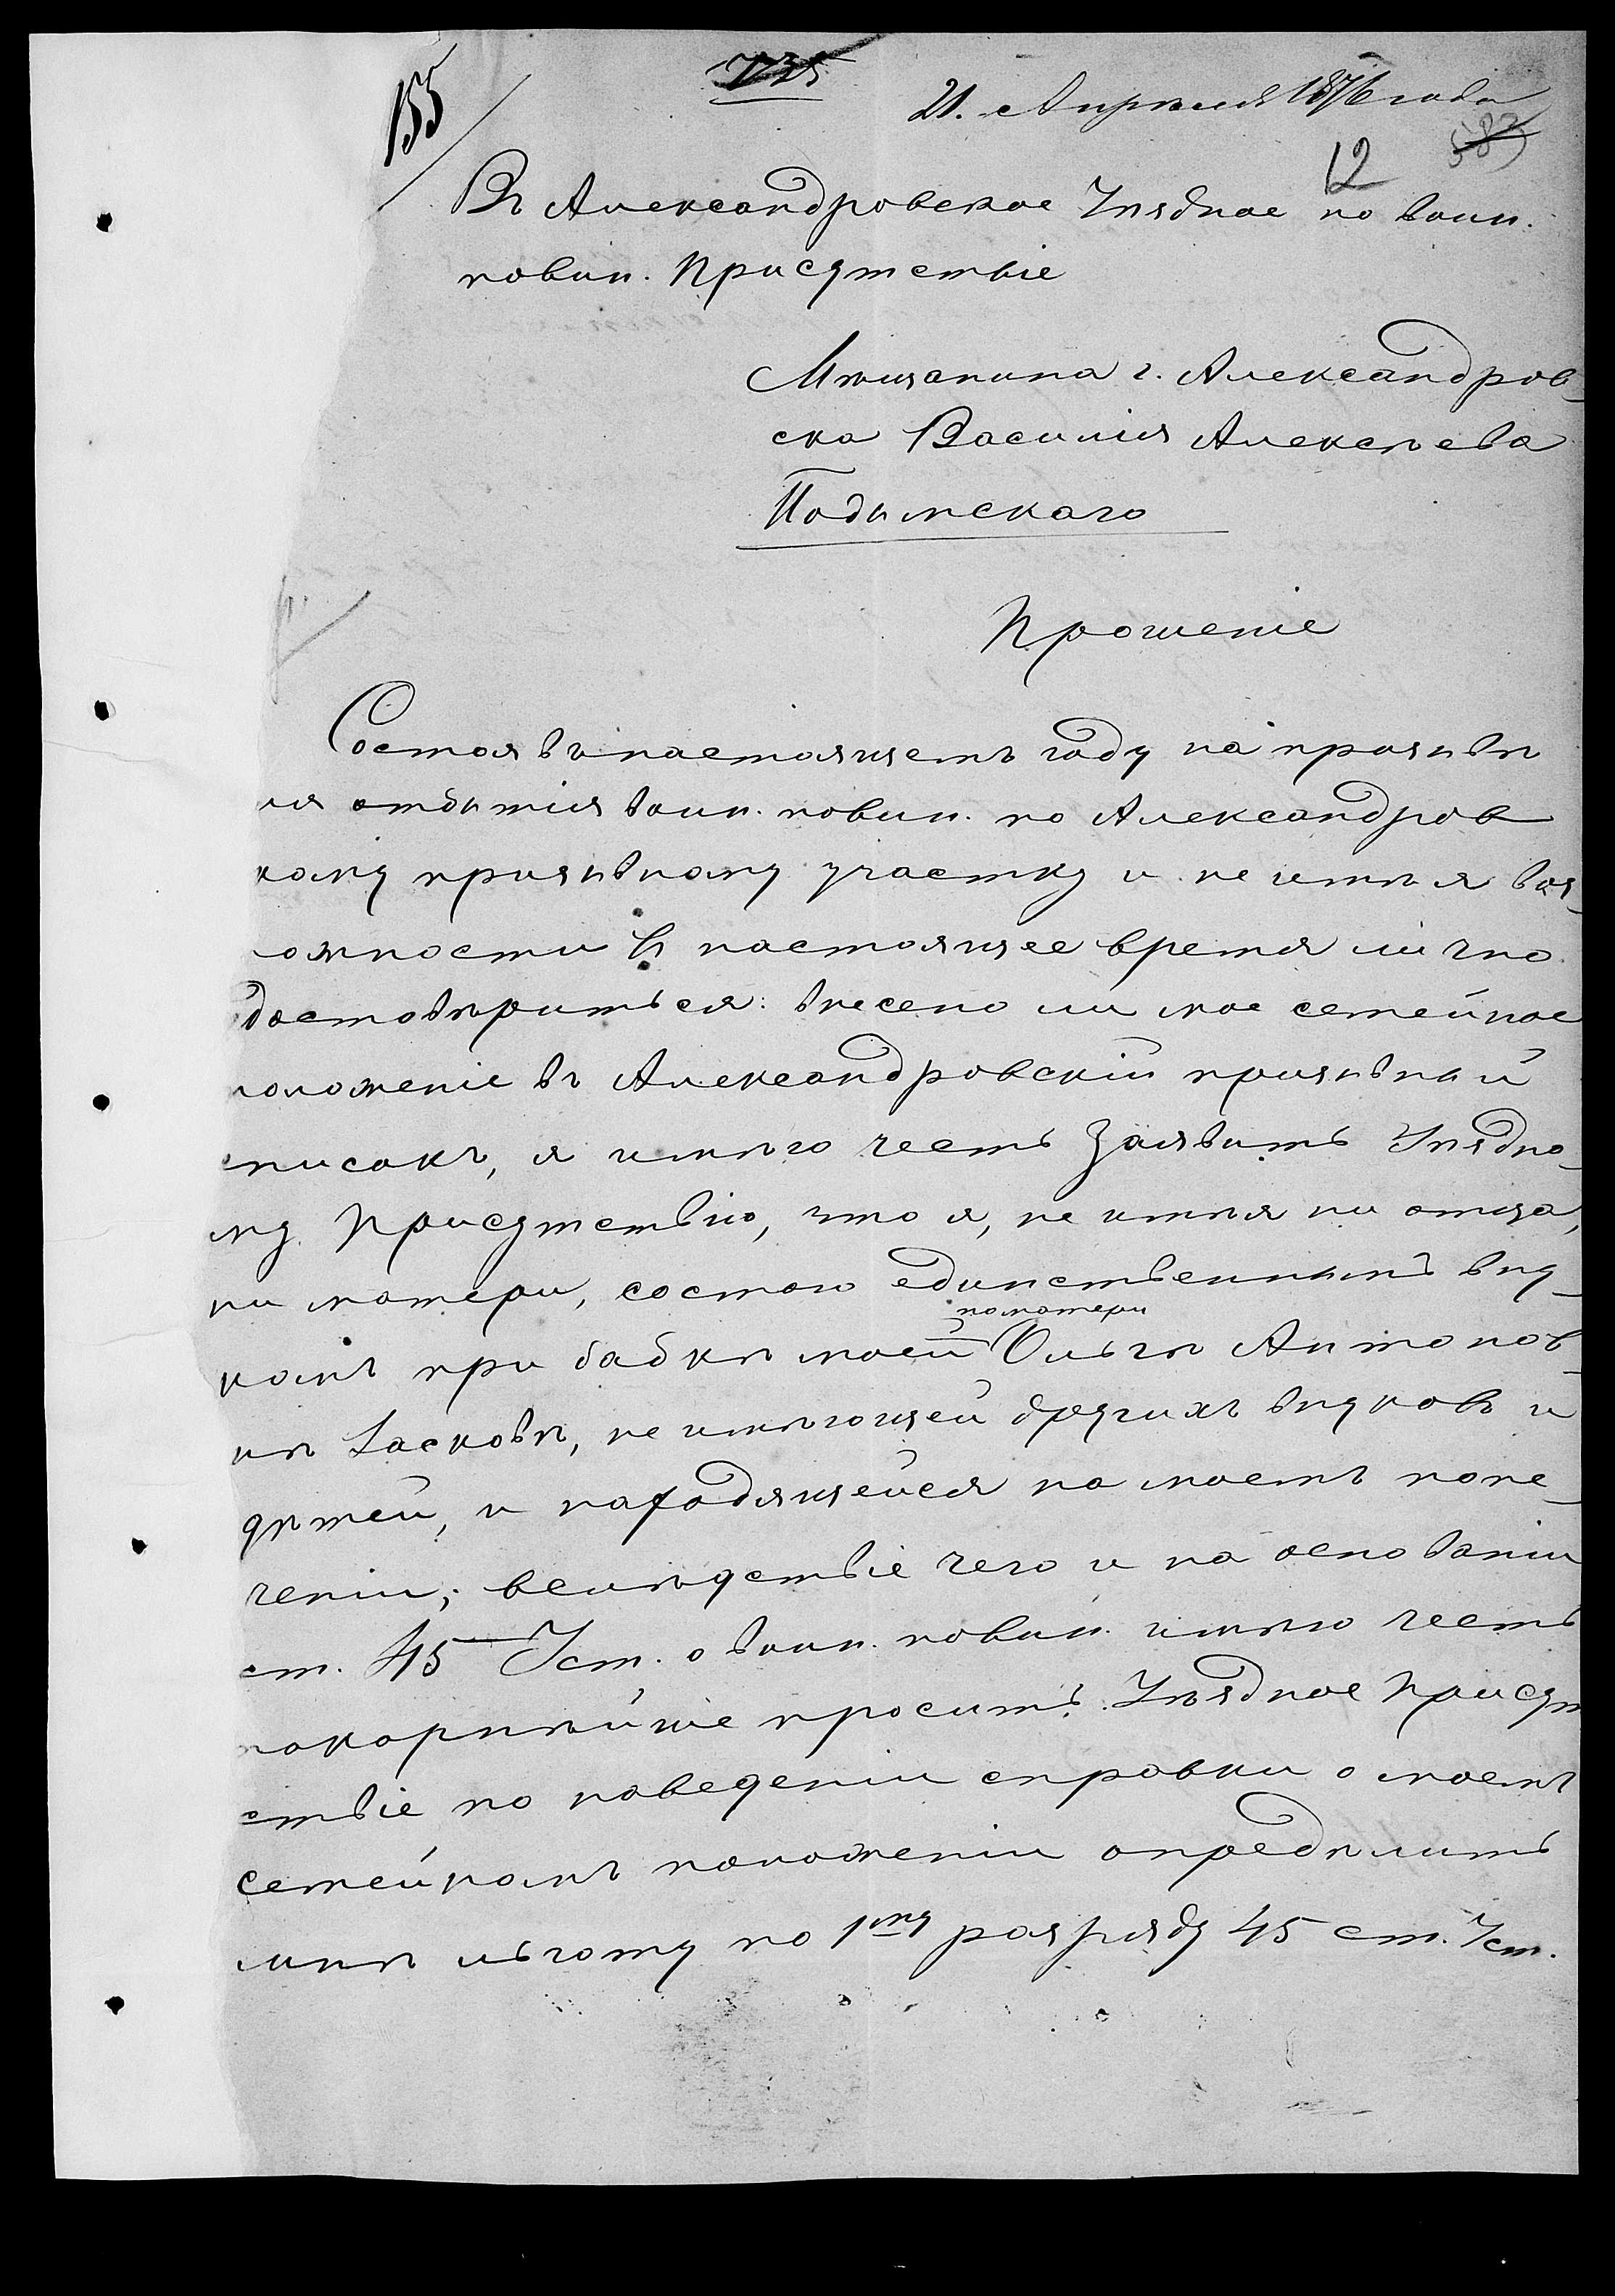 155
735
21. Апрѣля 1876 года
12 583
Въ Александровское Уѣздное по воин.
повин. Присутствіе
Мѣщанина г. Александров-
ска Василія Алексѣева
Подымскаго
Прошеніе
Состоя въ настоящемъ году на призывѣ
ля отбытія воин. повин. по Александров
кому призывному участку и не имѣя воз-
ожности въ настоящее время лично
достовѣриться: внесено ли мое семейное
положеніе въ Александровскій призывный
списокъ, я имѣю честь заявить Уѣздно-
му Присутствію, что я, не имѣя ни отца,
ни матери, состою единственнымъ вну-
по матери
комъ при бабкѣ моей Ольгѣ Антонов-
нѣ, не имѣющей другихъ внуковъ и
дѣтей, и находящейся на моемъ попе-
ченіи; вслѣдствіе чего и на основаніи
ст. 45 Уст. о воин. повин. имѣю честь
покорнѣйше просить Уѣздное Присут
ствіе по наведеніи справки о моемъ
семейномъ положеніи опредѣлить
мнѣ льготу по 1му разряду 45 ст. Уст.